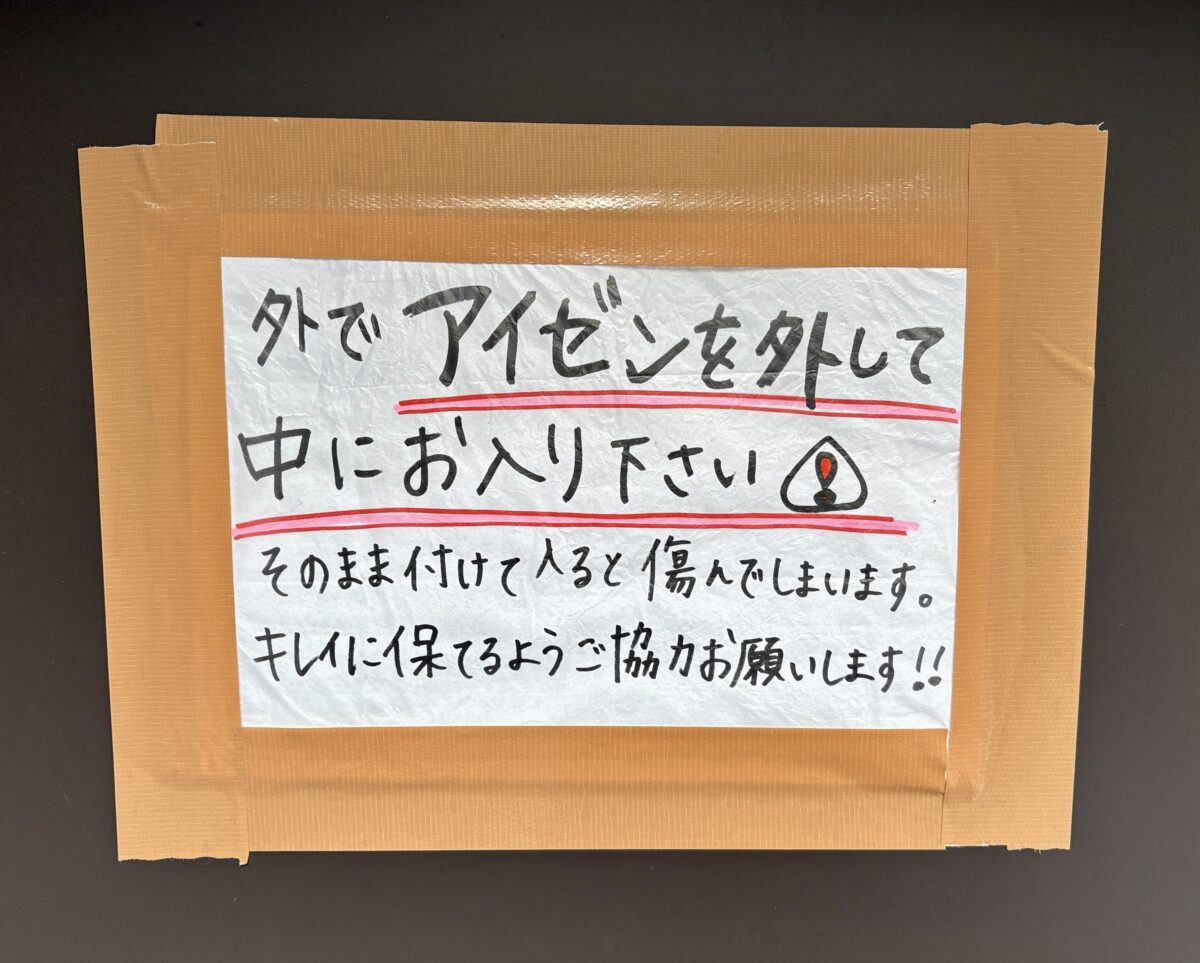 外でアイゼンを外して
中にお入り下さい
そのまま付けて入ると傷んでしまいます。
キレイに保てるようご協力お願いします!!